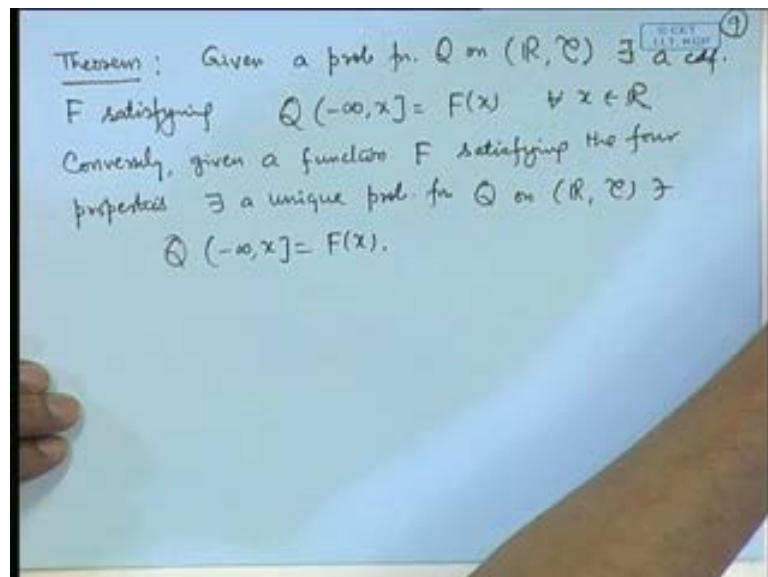 9
© CET
I.I.T. KGP
Theorem : Given a prob fn. Q on (ℝ, 𝒞) ∃ a cdf.
F satisfying Q (-∞, x] = F(x) ∀ x ∈ ℝ
Conversely, given a function F satisfying the four
properties ∃ a unique prob. fn Q on (ℝ, 𝒞) ∋
Q (-∞, x] = F(x).